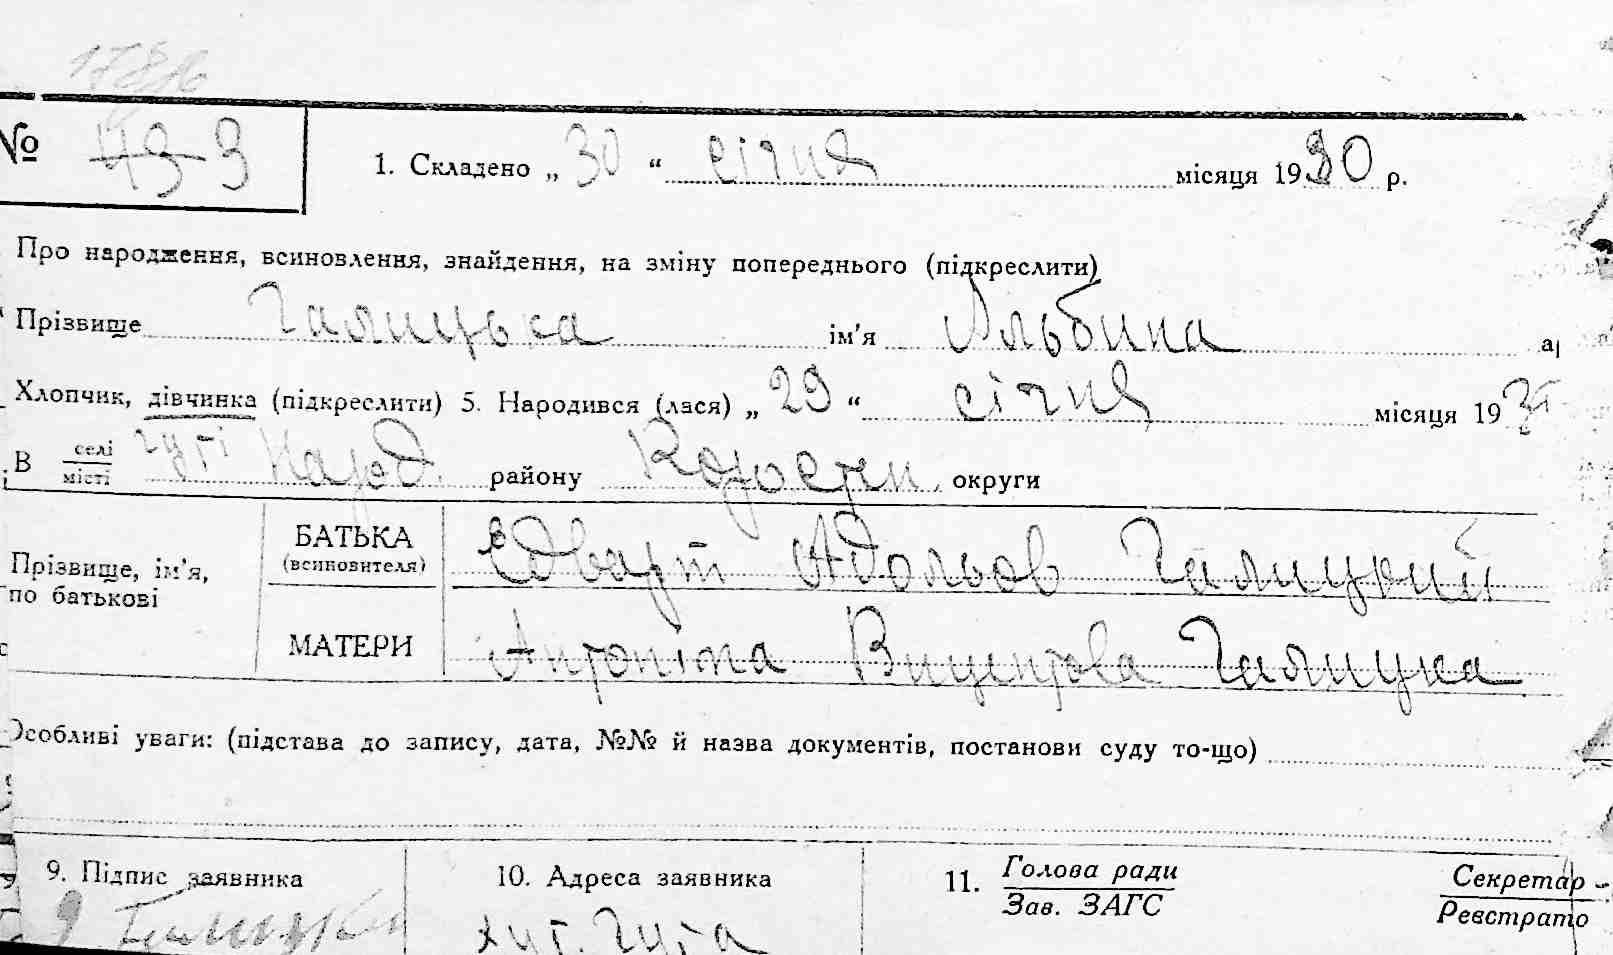 № 49 9
1. Складено „ 30 “ січня місяця 1930 р.
Про народження, всиновлення, знайдення, на зміну попереднього (підкреслити)
Прізвище Галицька ім'я Альбина
Хлопчик, дівчинка (підкреслити) 5. Народився (лася) „ 29 “ січня місяця 19
В селі місті Гуті Народ. району Коростен округи
Прізвище, ім'я, по батькові
БАТЬКА (всиновителя) Едварт Адольов Галицкий
МАТЕРИ Антоніна Вицентова Галицка
Особливі уваги: (підстава до запису, дата, №№ й назва документів, постанови суду то-що)
9. Підпис заявника 10. Адреса заявника 11. Голова ради Секретар
Зав. ЗАГС Реєстрато
Галицки хут. Гута